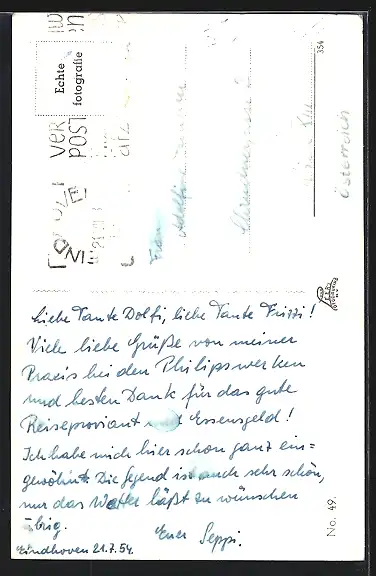 Echte
fotografie
VER
POST
EIND
354
Frau
Österreich
Liebe Tante Dolfi, liebe Tante Frizzi!
Viele liebe Grüße von meiner
Praxis bei den Philipswerken
und besten Dank für das gute
Reiseproviant und Essensgeld!
Ich habe mich hier schon ganz ein=
gewöhnt. Die Gegend ist auch sehr schön,
nur das Wetter läßt zu wünschen
übrig.
Euer Seppi.
Eindhoven 21.7.54.
No. 49.